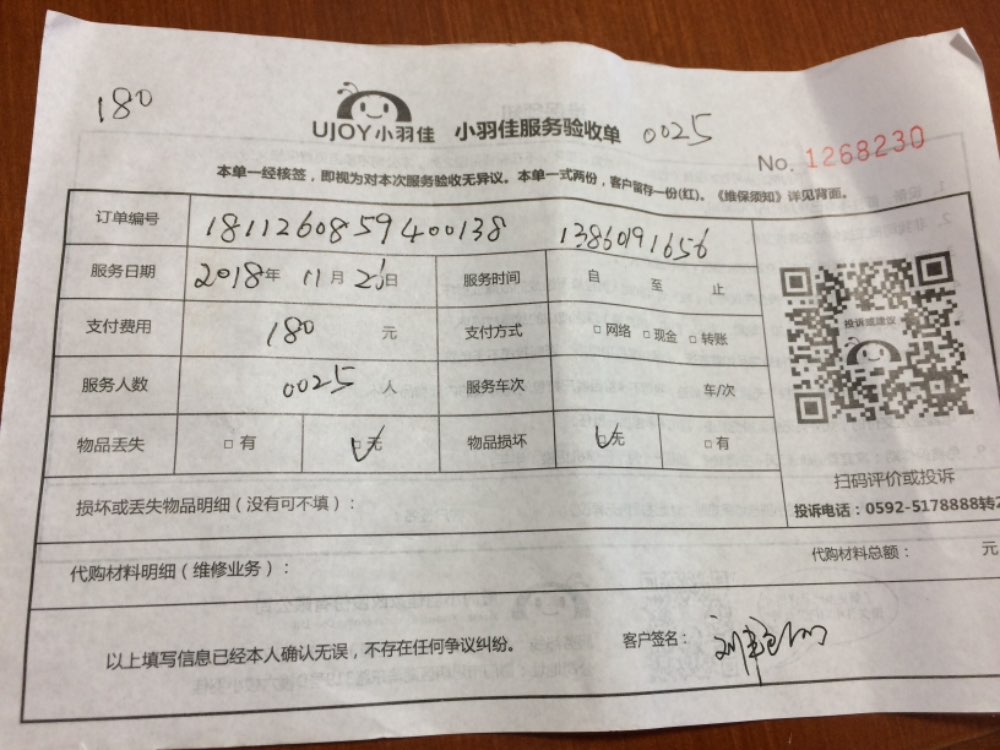 180
UJOY小羽佳 小羽佳服务验收单 0025
No. 1268230
本单一经核签，即视为对本次服务验收无异议。本单一式两份，客户留存一份(红)。《维保须知》详见背面。
订单编号 181126085940038 13860191656
服务日期 2018年 11月 26日 服务时间 自 至 止
支付费用 180 元 支付方式 □ 网络 □ 现金 □ 转账
投诉或建议
服务人数 0025 人 服务车次 车/次
物品丢失 □ 有 □ 无 物品损坏 □ 无 □ 有
扫码评价或投诉
损坏或丢失物品明细（没有可不填）：
投诉电话：0592-5178888转2
代购材料明细（维修业务）： 代购材料总额： 元
以上填写信息已经本人确认无误，不存在任何争议纠纷。 客户签名：